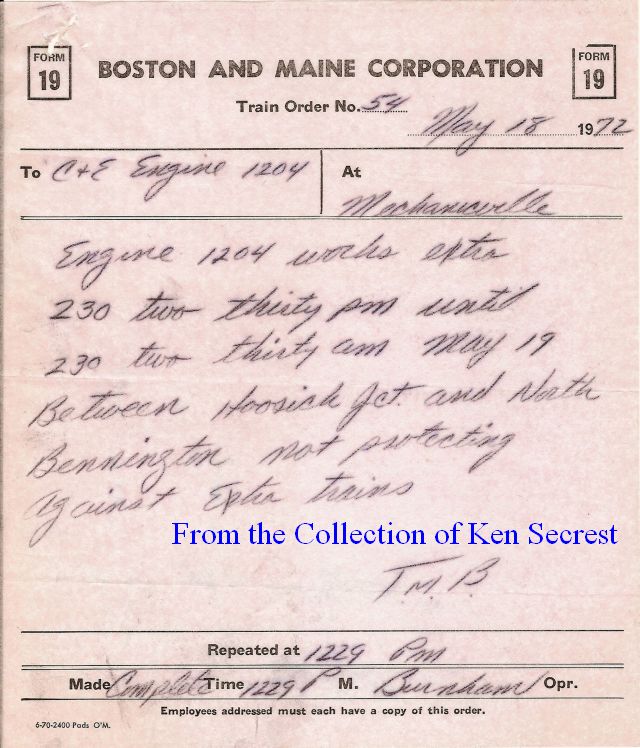 FORM 19
BOSTON AND MAINE CORPORATION
FORM 19
Train Order No. 54
May 18 1972
To C+E Engine 1204 At
Mechanicville
Engine 1204 works extra
230 two thirty pm until
230 two thirty am May 19
Between Hoosick Jct. and North
Bennington not protecting
against Extra trains
From the Collection of Ken Secrest
T.M.B.
Repeated at 1229 Pm
Made Complete Time 1229 P M. Burnham Opr.
Employees addressed must each have a copy of this order.
6-70-2400 Pads O'M.